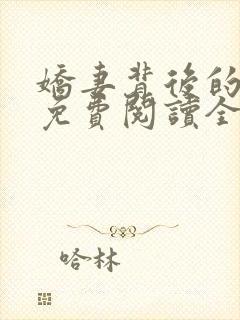 嬌妻背後的
免費閱讀全
哈林